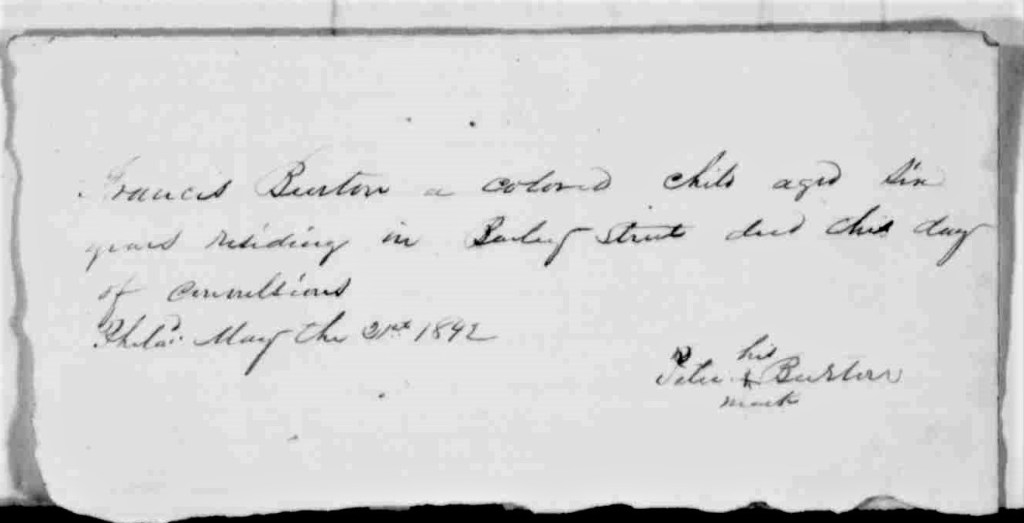 Francis Burton a colored child aged six
years residing in Barley Street died this day
of convulsions
Philad. May the 21st 1842
his
Peter X Burton
mark